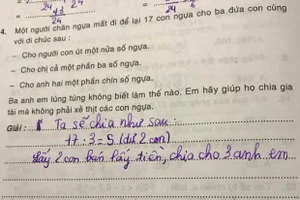 24 24
24
4. Một người chăn ngựa mất đi để lại 17 con ngựa cho ba đứa con cùng
với di chúc sau :
– Cho người con út một nửa số ngựa.
– Cho chị cả một phần ba số ngựa.
– Cho anh hai một phần chín số ngựa.
Ba anh em lúng túng không biết làm thế nào. Em hãy giúp họ chia gia
tài mà không phải xẻ thịt các con ngựa.
Giải : Ta sẽ chia như sau :
17 : 3 = 5 (dư 2 con)
Lấy 2 con bán lấy tiền, chia cho 3 anh em